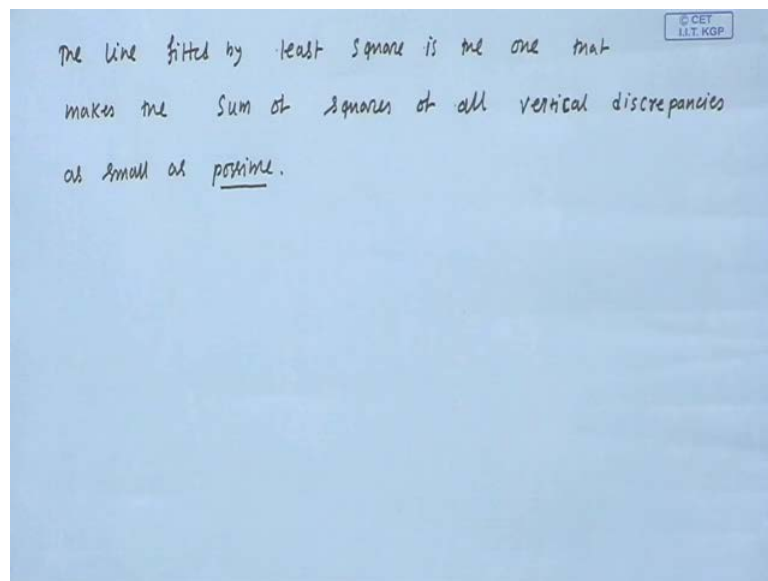 © CET
I.I.T. KGP
The line fitted by least square is the one that
makes the sum of squares of all vertical discrepancies
as small as possible.